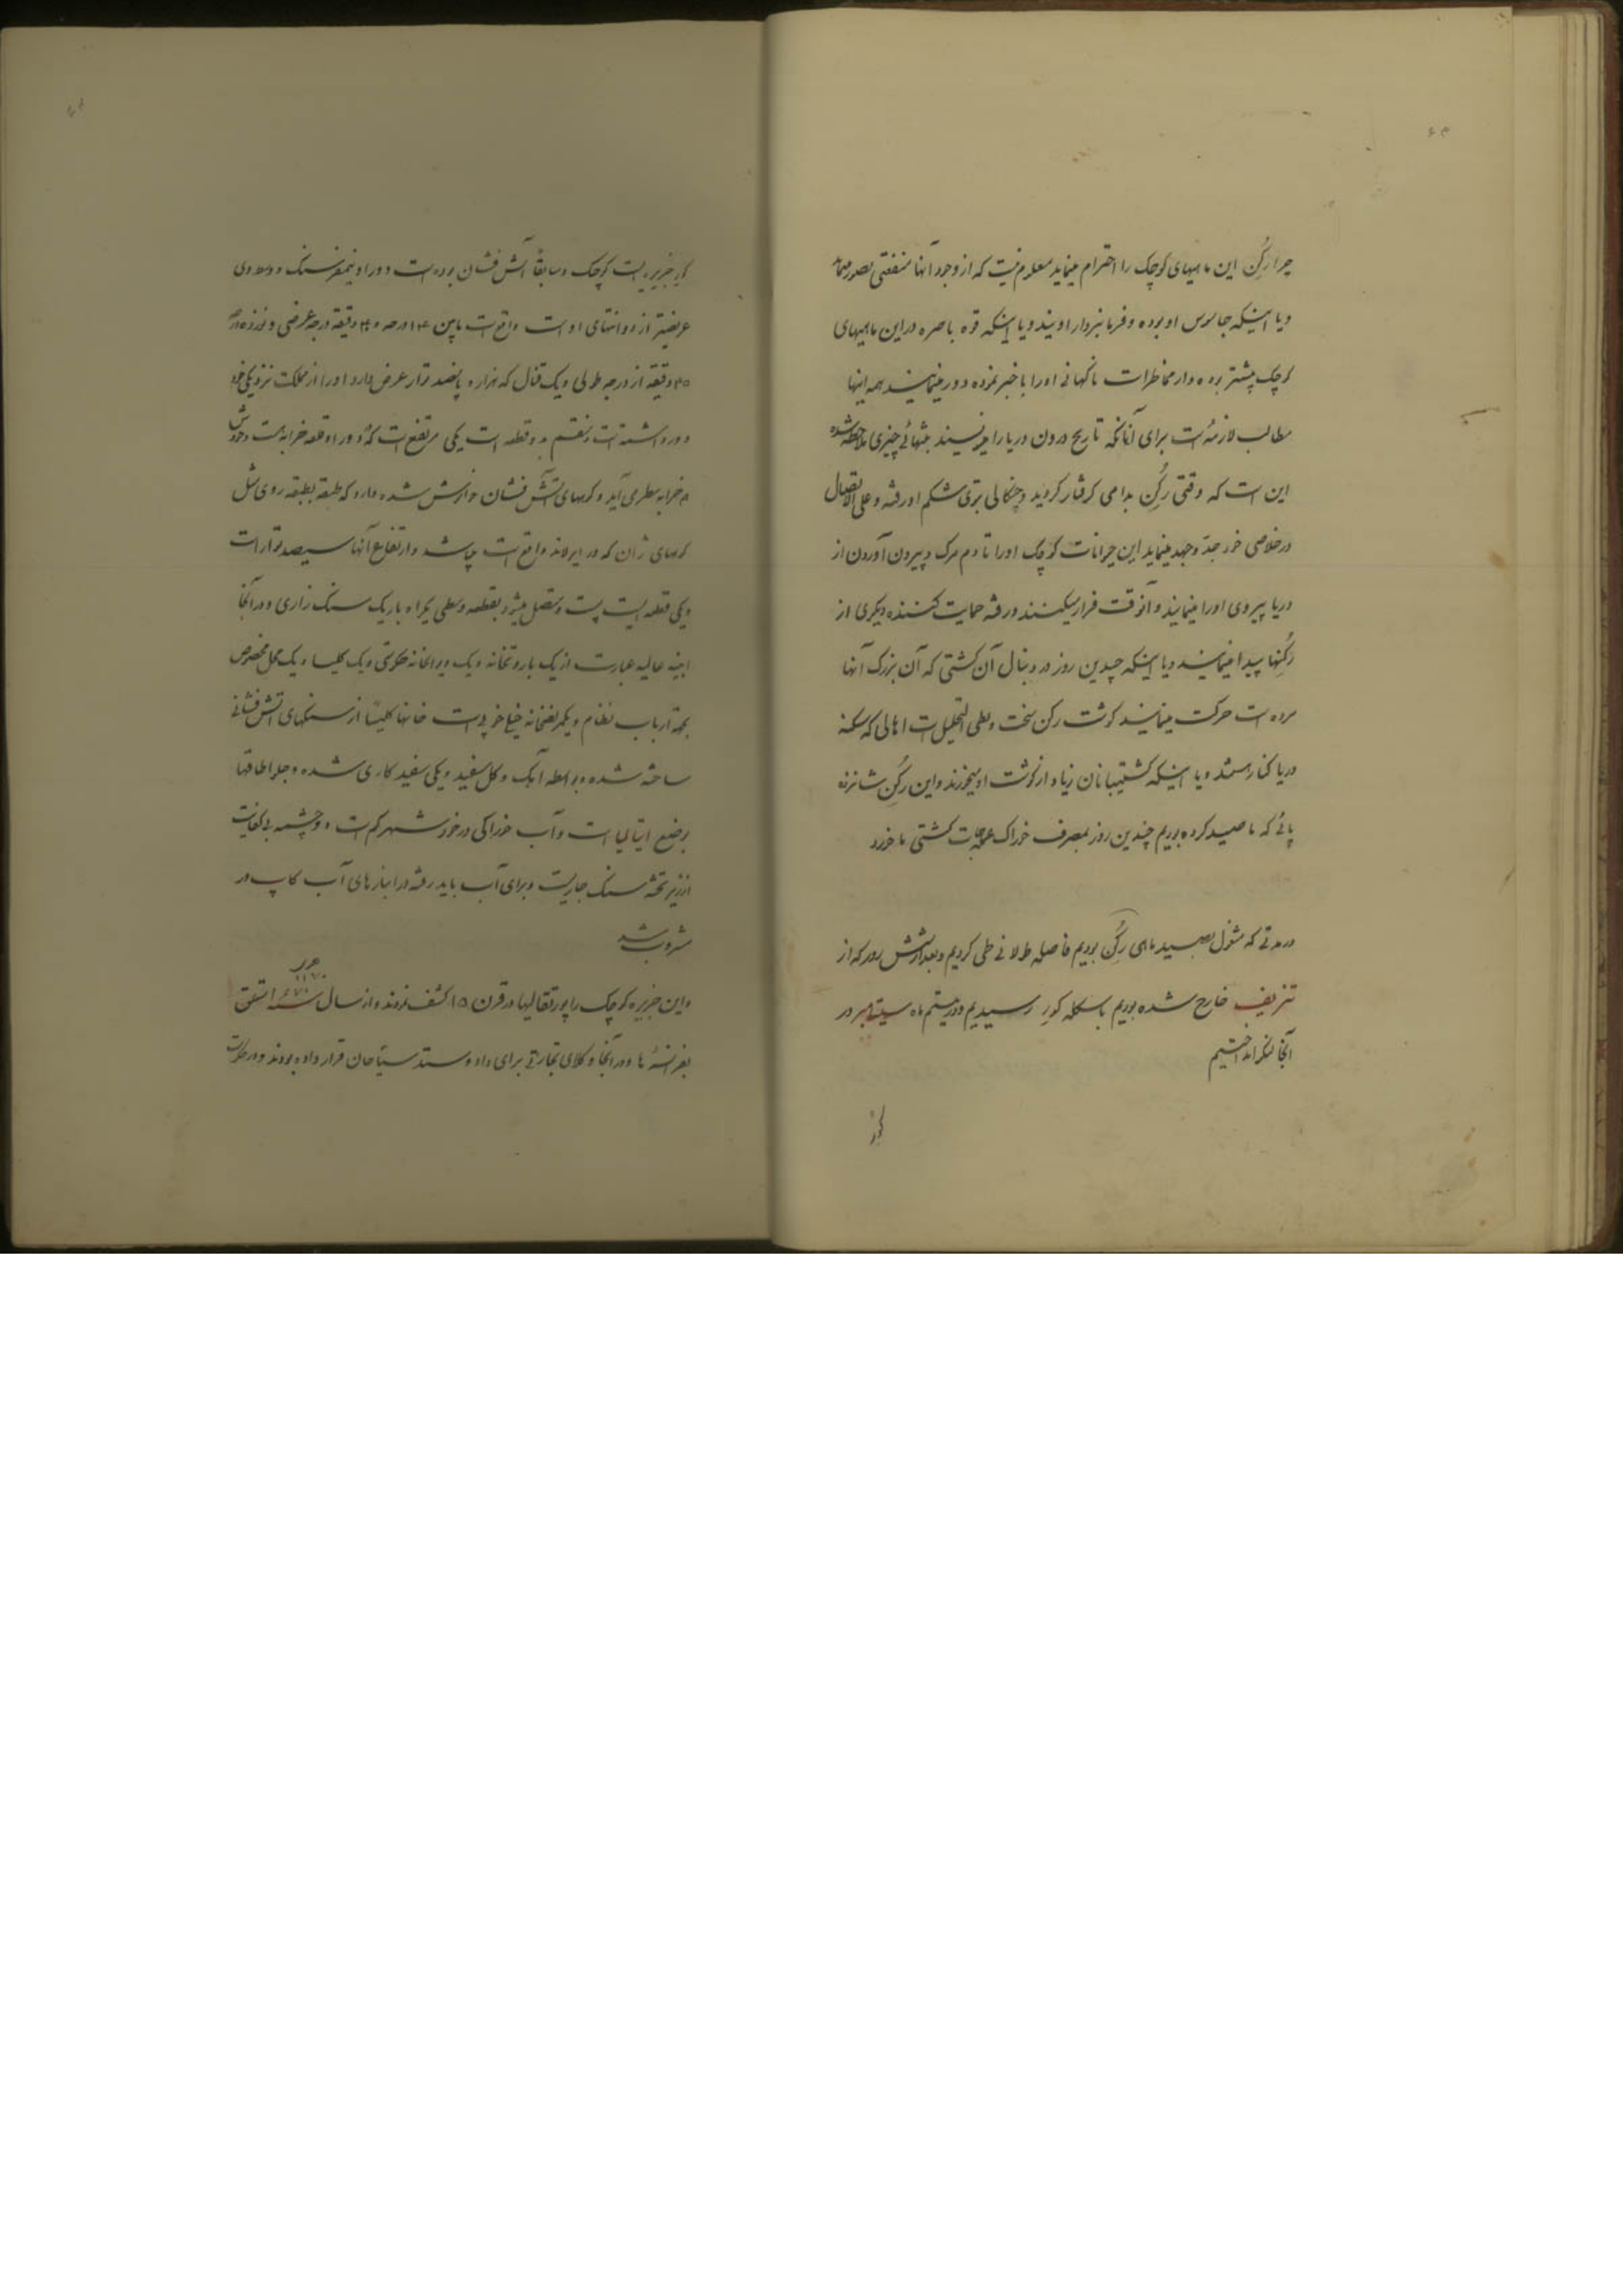 چرا رکُن این ماهیهای کوچک را احترام مینماید معلوم نیست که از وجود آنها منفعتی تصور مینماید
ویا اینکه جاسوس او بوده و فرمانبردار اویند ویا اینکه قوه باصره در این ماهیهای
کوچک بیشتر بوده و از مخاطرات ناگهانی اورا با خبر نموده دور مینمایند همه اینها
مطالب لازمه است برای آنانکه تاریخ درون دریا را مینویسند منتهائی چیزی ملاحظه شده
این است که وقتی رکُن بدامی گرفتار گردید و چنگالی توی شکم او رفته و علی الاتصال
در خلاصی خود جدّ وجهد مینماید این حیوانات کوچک اورا تا دم مرگ وبیرون آوردن از
دریا پیروی اورا مینمایند و آنوقت فرار میکنند و رفته حمایت کننده دیگری از
رکُنها پیدا مینمایند ویا اینکه چندین روز در دنبال آن کشتی که آن بزرگ آنها
مرده است حرکت مینمایند گوشت رکن سخت و بطی التحلیل است اهالی که سکنه
دریا کنار هستند ویا اینکه کشتیبانان زیاد از گوشت او میخورند و این رکُن شانزده
پائی که ما صید کرده بودیم چندین روز بمصرف خوراک عملجات کشتی ما خورد
در مدتی که مشغول بصید ماهی رکُن بودیم فاصله طولانی طی کردیم و بعد از شش روز که از
تنریف خارج شده بودیم باسکله کورِ رسیدیم و در بیستم ماه سپتامبر در
آنجا لنگر انداختیم
کورِ
کورِ جزیره ایست کوچک وسابقاً آتش فشان بوده است دور او نیمفرسنگ و وسط وی
عریضتر از دو انتهای او است واقع است بابین ۱۴ درجه و ۴۰ دقیقه درجه عرضی و نوزده درجه
۴۵ دقیقه از درجه طولی و یک قنال که هزار و پانصد توار عرض دارد اورا از مملکت نزدیکی خود
دور داشته است و منقسم بدو قطعه است یکی مرتفع است که دور او قلعه خرابه است
خرابه بنظر می آید و کوههای آتش فشان خاموش شده دارد که طبقه بطبقه روی مثل
کوههای ژان که در ایرلاند واقع است میباشد و ارتفاع آنها سیصد توار است
ویکی قطعه ایست پست و متصل میشود بقطعه وسطی بیراه باریک سنگ زاری و در آنجا
ابنیه عالیه عبارت از یک باروتخانه و یک دیوانخانه حکومتی و یک کلیسا و یک محل مخصوص
بجهة ارباب نظام و یکمریضخانه خیلی خوبی است خانها کلیتاً از سنگهای آتش فشانی
ساخته شده و بواسطه آهک و گل سفید و یکی سفید کاری شده و جلو اطاقها
بوضع ایتالیا است و آب خوراکی در خود شهر کم است دو چشمه بی کفایت
از زیر تخته سنگ جاریست و برای آب باید رفته در انبارهای آب کاپ ور
مشروب شد
واین جزیره کوچک را پورتقالیها در قرن ۱۵ کشف نمودند و از سال ۱۶۷۷ متعلق
بفرانسه ها و در آنجا وکلای تجارتی برای داد وستد سیاحان قرار داده بودند و در